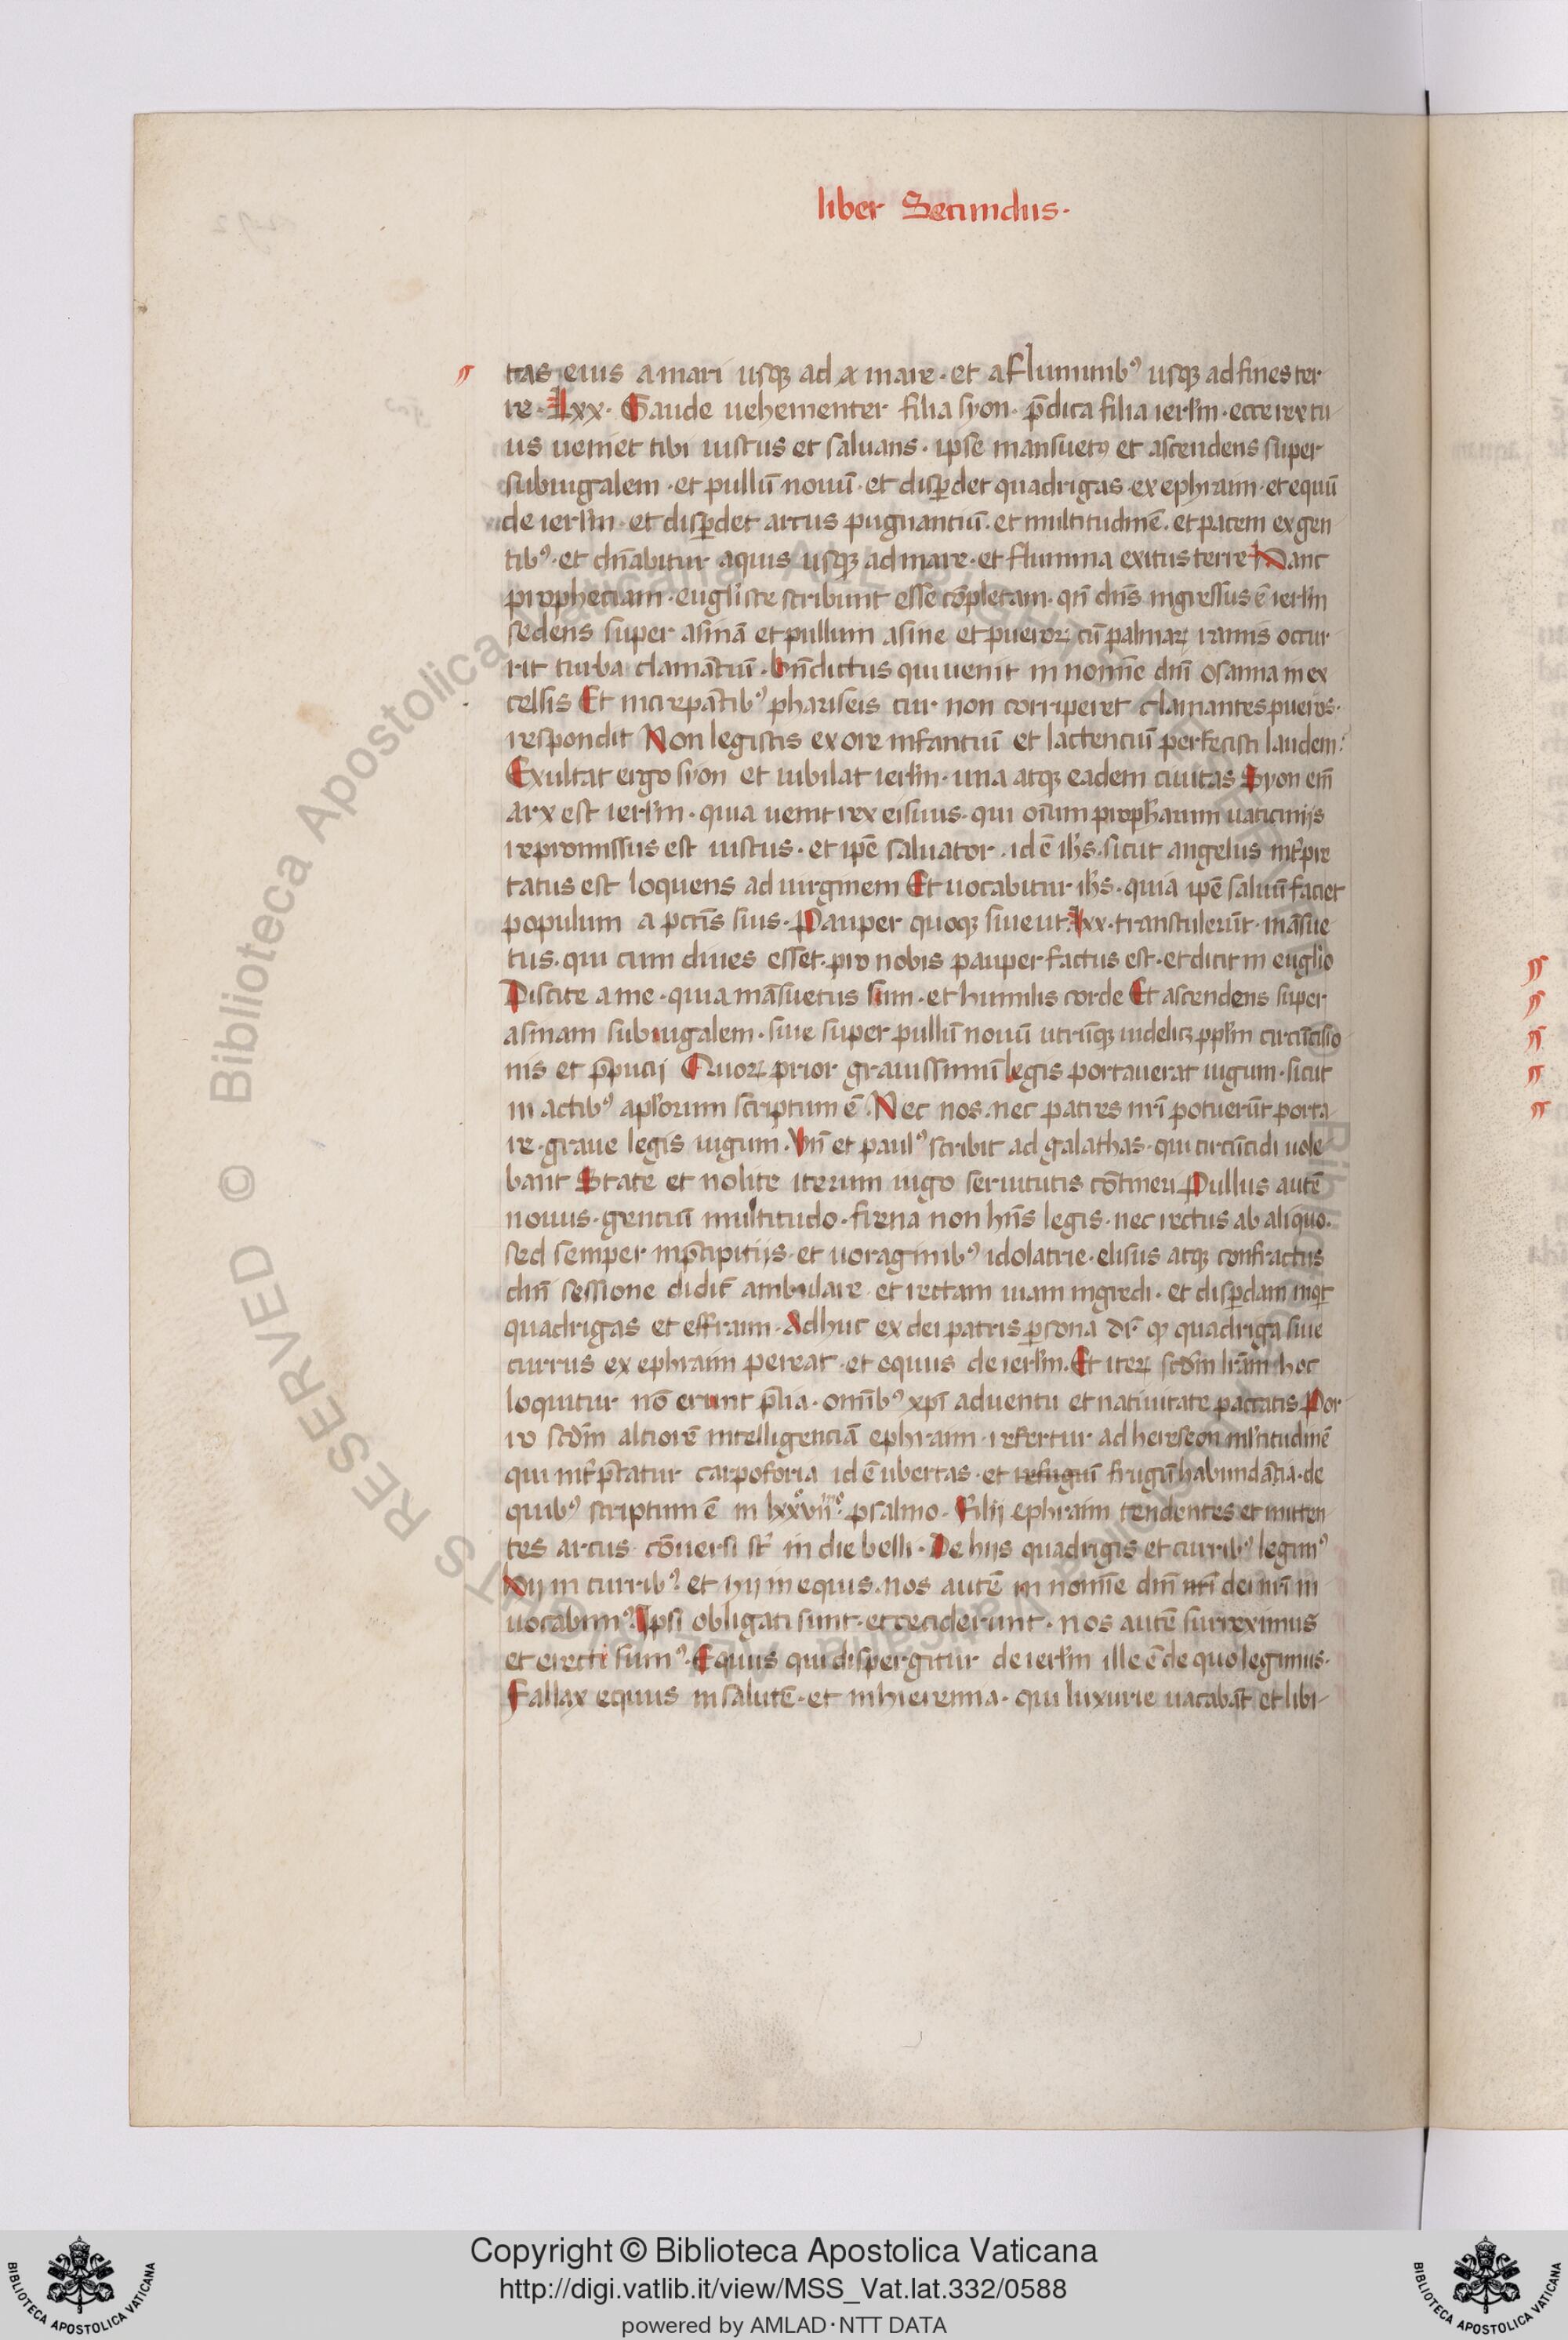 liber Secundus·
tas eius a mari usqꝫ ad a mare · et a fluminibꝰ usqꝫ ad fines ter
re · lxx · Gaude uehementer filia syon · p̄dica filia ierl̄m · ecce rex tu
us ueniet tibi iustus et saluans · ipse mansuetꝰ et ascendens super
subiugalem · et pullū nouū · et disp̄det quadrigas ex ephraim · et equū
de ierl̄m · et disp̄det arcus pugnantiū · et multitudinē · et pacem ex gen
tibꝰ · et dn̄abitur aquis usqꝫ ad mare · et flumina exitus terre Hanc
prophetiam · eugl̄iste scribunt esse cōpletam · qn̄ dn̄s ingressus ē ierl̄m
sedens super asinā et pullum asine et pueroꝝ cū palmaꝝ ramis occur
rit turba clamātiū · bn̄dictus qui uenit in nomīe dn̄i osanna in ex
celsis Et increpātibꝰ phariseis cur non corriperet clamantes pueros ·
respondit Non legistis ex ore infantiū et lactenciū perfecisti laudem ·
Exultat ergo syon et iubilat ierl̄m · una atqꝫ eadem ciuitas Syon em̄
arx est ierl̄m · quia uenit rex ei suus · qui oīum proph̄arum uaticinijs
repromissus est iustus · et ip̄e saluator · id ē ih̄s · sicut angelus int̄pre
tatus est loquens ad uirginem Et uocabitur ih̄s · quia ip̄e saluū faciet
populum a pctīs suis · Pauper quoqꝫ siue ut lxx · transtulerūt · māsue
tus · qui cum diues esset · pro nobis pauper factus est · et dicit in eugl̄io
Discite a me · quia māsuetus sum · et humilis corde Et ascendens super
asinam subiugalem · siue super pullū nouū utrūqꝫ uidelicꝫ ppl̄m circūcisio
nis et p̄pucij Quoꝝ prior grauissimū legis portauerat iugum · sicut
in actibꝰ apl̄orum scriptum ē · Nec nos · nec patres nr̄i potuerūt porta
re · graue legis iugum · Vn̄ et paulꝰ scribit ad galathas · qui circūcidi uole
bant State et nolite iterum iugo seruitutis cōtineri Pullus autē
nouus · gentiū multitudo · frena non hn̄s legis · nec rectus ab aliquo ·
sed semper in p̄cipitijs · et uoraginibꝰ idolatrie · elisus atqꝫ confractus
dn̄i sessione didic̄ ambulare · et rectam uiam ingredi · et disp̄dam inqt̄
quadrigas et effraim · Adhuc ex dei patris p̄sona dr̄ qꝫ quadriga siue
currus ex ephraim pereat · et equus de ierl̄m · Et iteꝝ scd̄m lr̄am hoc
loquitur nō erunt p̄lia · omībꝰ xp̄i aduentu et natiuitate paccatis Por
ro scd̄m altiorē intelligenciā ephraim · refertur ad hereseon
qui int̄p̄tatur carpoforia id ē ubertas · et refugiū frugū habundācia · de
quibꝰ scriptum ē in lxxvii · psalmo · Filij ephraim tendentes et mitten
tes arcus cōuersi st̄ in die belli · De hijs quadrigis et curribꝰ legimꝰ
Hij in curribꝰ · et hij in equis · nos autē in nomīe dn̄i nr̄i dei nr̄i in
uocabimꝰ · Ipsi obligati sunt · et ceciderunt · nos autē surreximus
et erecti sumꝰ · Equus qui dispergitur de ierl̄m ille ē de quo legimus ·
Fallax equus in salutē · et in hieremia · qui luxurie uacabāt et libi
© Biblioteca Apostolica Vaticana ALL RIGHTS RESERVED
Copyright © Biblioteca Apostolica Vaticana
http://digi.vatlib.it/view/MSS_Vat.lat.332/0588
powered by AMLAD·NTT DATA
BIBLIOTECA APOSTOLICA VATICANA
BIBLIOTECA APOSTOLICA VATICANA